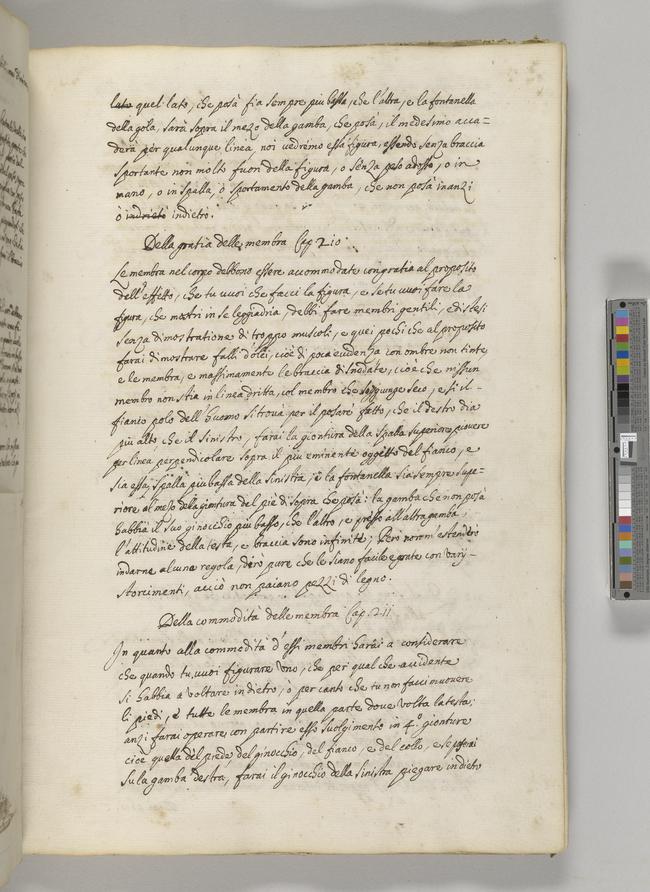 lato quel lato, che posà fia sempre piu bassa, che l'altra, e la fontanella
della gola, sarà sopra il mezo della gamba, che posà, il medesimo acca-
derà per qualunque linea, noi vedremo essa figura, essendo senza braccia
sportante non molto fuori della figura, o senza peso adosso, o in
mano, o in spalla, ò sportamento della gamba, che non posà inanzi
ò indrieto indietro.
Della gratia delle membra Cap. 210
Le membra nel corpo debbono essere accommodate con gratia al proposito
dell'effetto, che tu vuoi che facci la figura, e se tu vuoi fare la
figura, che mostri in se leggiadria, debbi fare membri gentili, e distesi
senza dimostratione di troppo muscoli, e quei pochi che al proposito
farai dimostrare falli dolci, cioè di poca euidenza con ombre non tinte,
e le membra, e massimamente le braccia disnodate, cioè che nissun
membro non stia in linea dritta, col membro che s'aggiunge seco, e s'il
fianco polo dell'huomo si troua, per il posare fatto, che il destro sia
più alto, che il sinistro, farai la giontura della spalla superiore piovere
per linea perpendicolare sopra il più eminente oggetto del fianco, e
sia essa spalla piu bassa della sinistra, e la fontanella sia sempre supe-
riore al mezo della giontura del piè di sopra che posà: la gamba che non posà
habbia il suo ginocchio piu basso, che l'altro, e presso all'altra gamba,
l'attitudine della testa, e braccia sono infinite; Però non m'estendero
indarne alcuna regola, dirò pure che le siano facile e grate con varÿ
storcimenti, acciò non paiano pezzi di legno.
Della commodità delle membra Cap. 211
In quanto alla commodità d'essi membri harai a considerare
che quando tu vuoi figurare uno, che per qualche accidente
si habbia a voltare indietro, ò per canto che tu non facci muovere
li piedi, e tutte le membra in quella parte dove volta la testa;
anzi farai operare con partire esso suolgimento in 4.º gionture
cioè quella del piede, del ginocchio, del fianco, e del collo, e se poserai
su la gamba destra, farai il ginocchio della sinistra piegare indietro